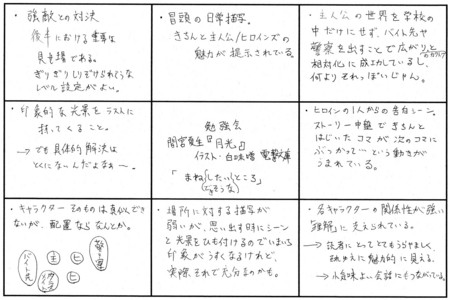 ・強敵との対決
後半における重要な
見せ場である。
ぎりぎりしりぞけられそうな
レベル設定がよい。
・冒頭の日常描写。
きちんと主人公/ヒロインズの
魅力が提示されている。
・主人公の世界を学校の
中だけにせず、バイト先や
警察を出すことで広がりと
相対化に成功しているし、
何よりそれっぽいじゃん。
・印象的な光景をラストに
持ってくること。
→でも具体的解決は
とくにないんだよなぁー。
勉強会
間宮夏生『月光』
イラスト・白味噌 電撃文庫
「まね(したい)ところ」
(できそうな)
・ヒロインの1人からの告白シーン。
ストーリー中盤できちんと
はじいたコマが次のコマに
ぶつかって…という動きが
うまれている。
・キャラクターそのものは真似でき
ないが、配置ならなんとか。
バイト先
主
ヒ
ヒ
・場所に対する描写が
弱いが、思い出す時にシーン
と光景をひも付けるのでいまいち
印象がうすくなるけれど、
実際、それで充分なのかも。
・各キャラクターの関係性が強い
理解に支えられている。
→読者にとってとてもうらやましく、
それゆえに魅力的に見える。
→小気味よい会話にもつながっている。